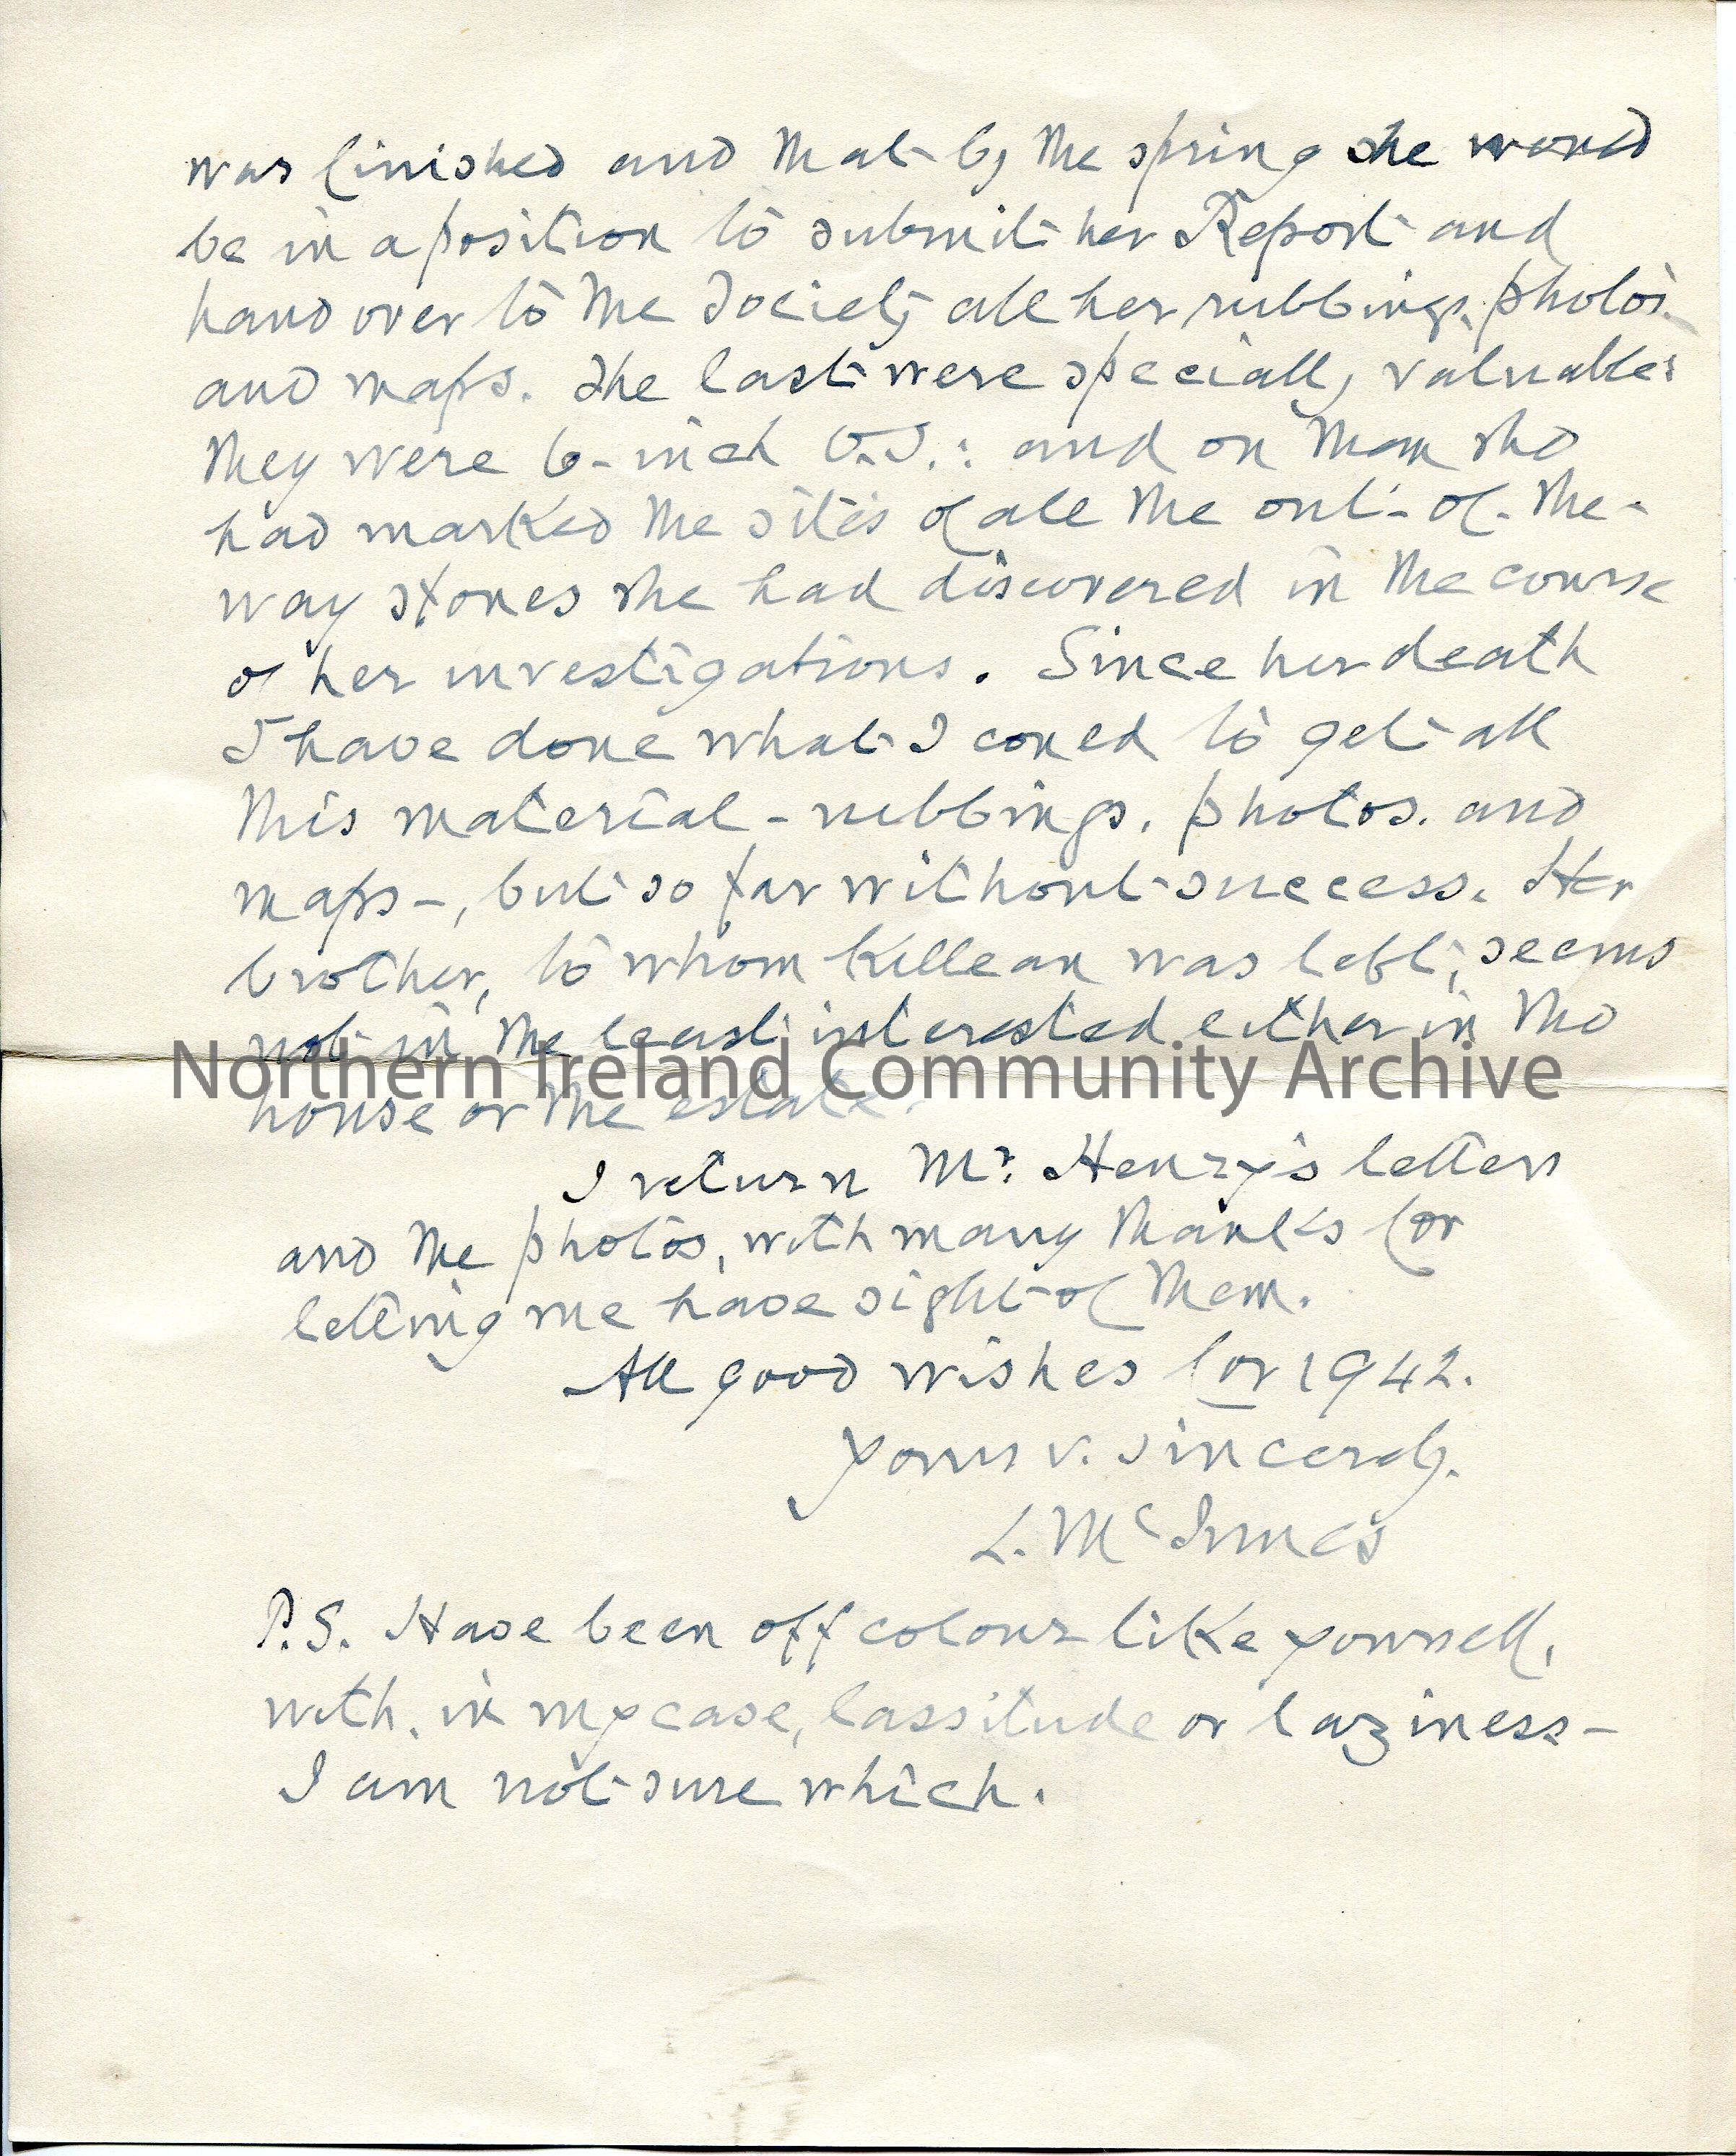 was finished and that by the spring she would
be in a position to submit her Report and
hand over to the Society all her rubbings, photos.
and maps. The last were specially valuable:
they were 6-inch O.S.: and on them she
had marked the sites of all the out-of-the-
way stones she had discovered in the course
of her investigations. Since her death
I have done what I could to get all
this material - rubbings, photos. and
maps -, but so far without success. Her
brother, to whom Killean was left, seems
not in the least interested either in the
Northern Ireland Community Archive
house or the estate.
I return Mr. Henry's letters
and the photos, with many thanks for
letting me have sight of them.
All good wishes for 1942.
Yours v. sincerely.
L. McInnes
P.S. Have been off colour like yourself,
with, in my case, lassitude or laziness -
I am not sure which.